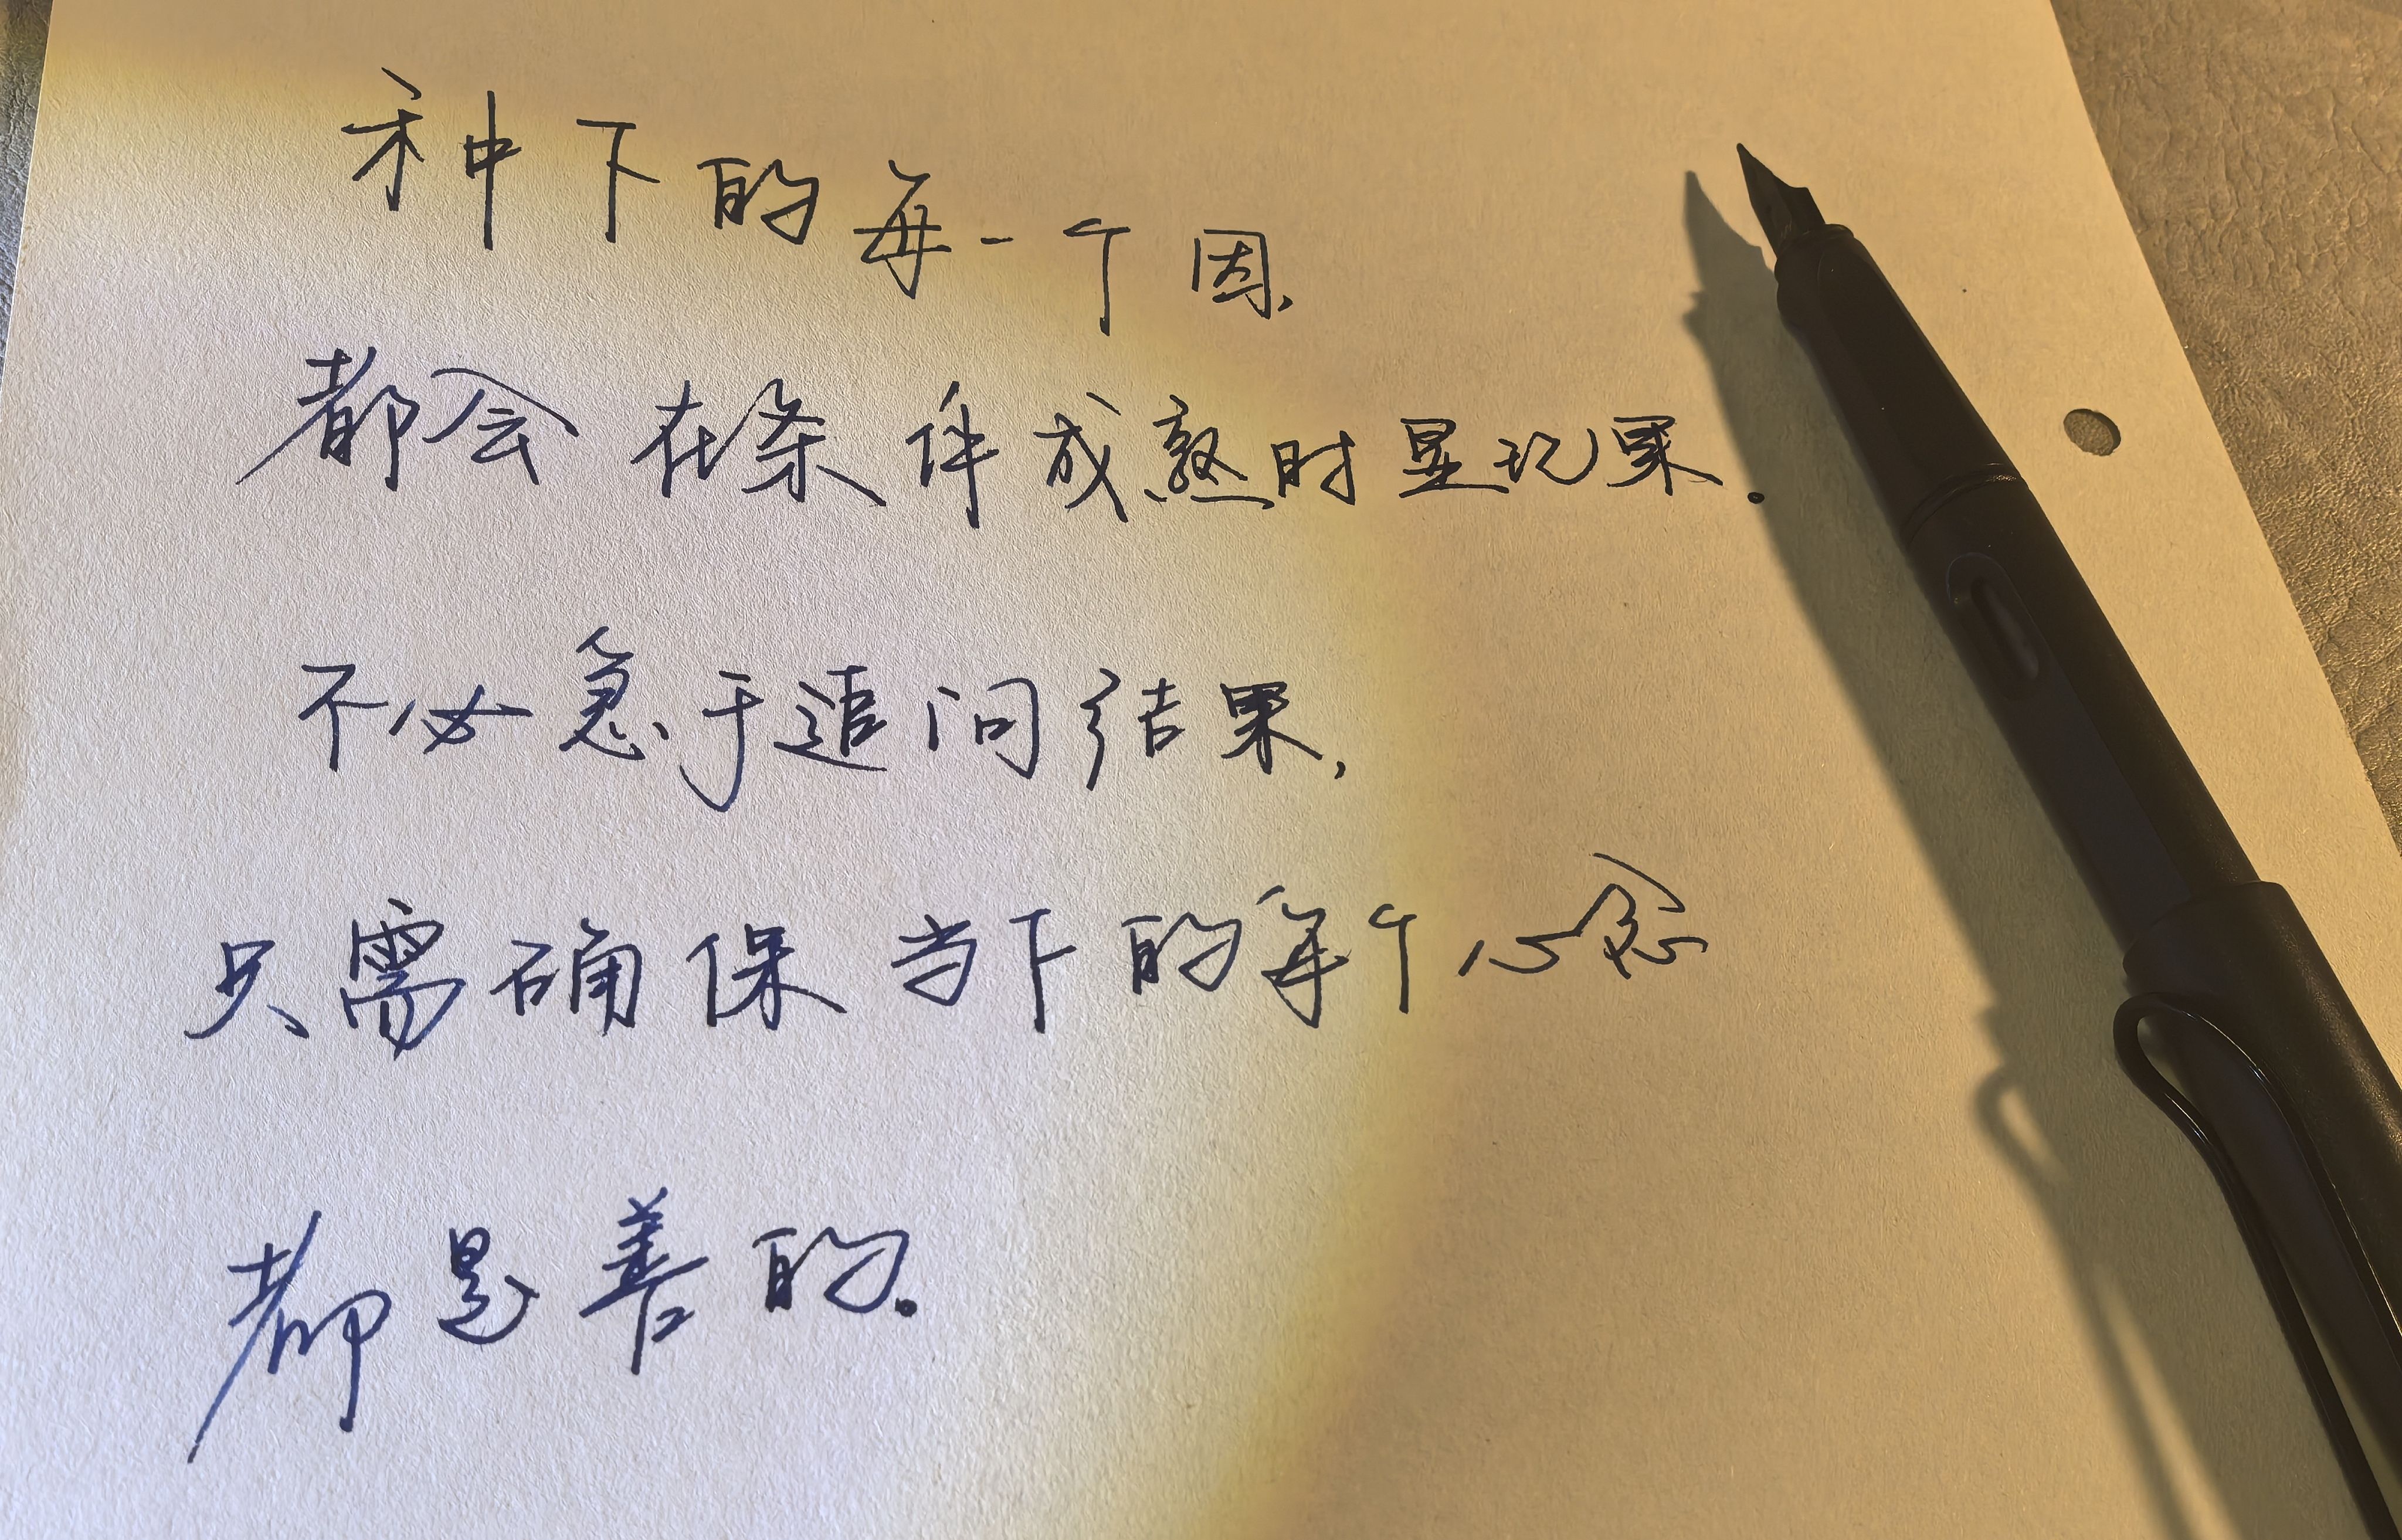 种下的每一个因,
都会在条件成熟时显现果.
不必急于追问结果,
只需确保当下的每个心念
都是善的.